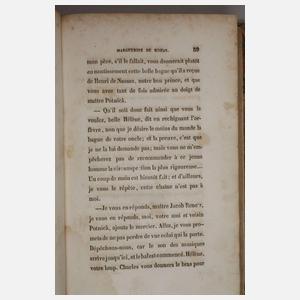 MARGUERITE DE 59
mon père, s'il le fallait, vous donnerait plutôt
en nantissement cette belle bague qu'il a reçue
de Henri de Nassau, notre bon prince, et que
vous avez tant de fois admirée au doigt de
maître Potnick.
— Qu'il soit donc fait ainsi que vous le
voulez, belle Hélène, dit en rechignant l'or-
fèvre, non que je désire le moins du monde la
bague de votre oncle; et la preuve, c'est que
je ne la lui demande pas; mais vous ne m'em-
pêcherez pas de recommander à ce jeune
homme la circonspection la plus rigoureuse...
Un coup de main est bientôt fait; et d'ailleurs,
je vous le répète, cette chaîne n'est pas à
moi.
— Je vous en réponds, maître Jacob
je vous en réponds, moi, votre ami et voisin
Potnick, ajouta le mercier. Allez, je vous pro-
mets de ne pas perdre de vue celui qui la porte.
Dépêchons-nous, car le son des musiques
arrive jusqu'ici, et le bal est commencé. Hélène,
votre loup. Charles vous donnera le bras pour